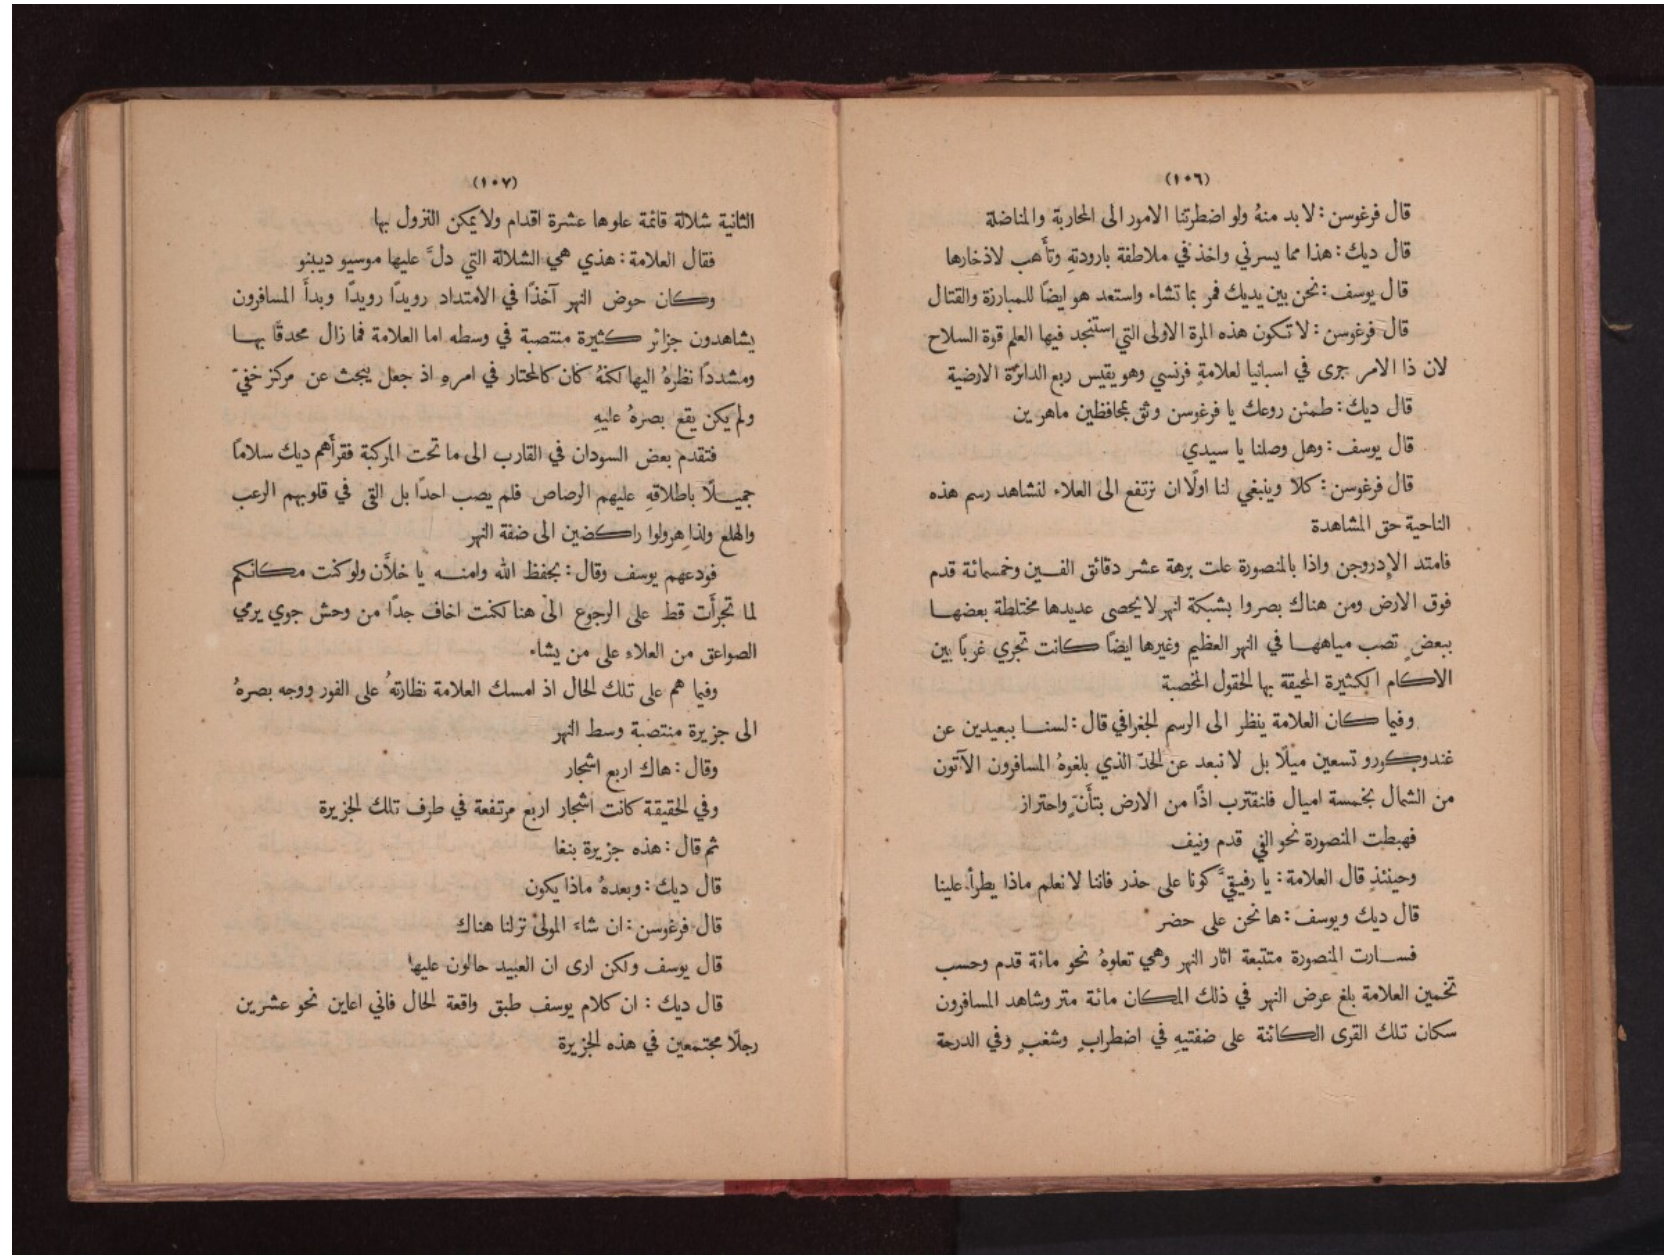 (١٠٦)
قال فرغوسن : لا بد منهُ ولو اضطرتنا الامور الى المحاربة والمناضلة
قال ديك : هذا مما يسرني واخذ في ملاطفة بارودتهِ وتأَهب لادخارها
قال يوسف : نحن بين يديك فمر بما تشاء واستعد هو ايضًا للمبارزة والقتال
قال فرغوسن : لا تكون هذه المرة الاولى التي استنجد فيها العلم قوة السلاح
لان ذا الامر جرى في اسبانيا لعلامةٍ فرنسي وهو يقيس ربع الدائرة الارضية
قال ديك : طمئن روعك يا فرغوسن وثق بمحافظين ماهرين
قال يوسف : وهل وصلنا يا سيدي
قال فرغوسن : كلا وينبغي لنا اولًا ان نرتفع الى العلاء لنشاهد رسم هذه
الناحية حق المشاهدة
فامتد الإِدروجن واذا بالمنصورة علت برهة عشر دقائق الفين وخمسمائة قدم
فوق الارض ومن هناك بصروا بشبكة انهر لا يحصى عديدها مختلطة بعضها
ببعضٍ تصب مياهها في النهر العظيم وغيرها ايضًا كانت تجري غربًا بين
الاكام الكثيرة المحيقة بها الحقول المخصبة
وفيما كان العلامة ينظر الى الرسم الجغرافي قال : لسنا ببعيدين عن
غندوكورو تسعين ميلًا بل لا نبعد عن الحدّ الذي بلغوهُ المسافرون الآتون
من الشمال بخمسة اميال فلنقترب اذًا من الارض بتأنٍّ واحتراز
فهبطت المنصورة نحو الفي قدم ونيف
وحينئذٍ قال العلامة : يا رفيقيَّ كونا على حذر فاننا لا نعلم ماذا يطرأ علينا
قال ديك ويوسف : ها نحن على حضر
فسارت المنصورة متتبعة اثار النهر وهي تعلوهُ نحو مائة قدم وحسب
تخمين العلامة بلغ عرض النهر في ذلك المكان مائة متر وشاهد المسافرون
سكان تلك القرى الكائنة على ضفتيهِ في اضطرابٍ وشغبٍ وفي الدرجة
(١٠٧)
الثانية شلالة قائمة علوها عشرة اقدام ولا يمكن النزول بها
فقال العلامة : هذي هي الشلالة التي دلَّ عليها موسيو ديبنو
وكان حوض النهر آخذًا في الامتداد رويدًا رويدًا وبدأَ المسافرون
يشاهدون جزائر كثيرة منتصبة في وسطه اما العلامة فما زال محدقًا بها
ومشددًا نظرهُ اليها لكنهُ كان كالمحتار في امرهِ اذ جعل يبحث عن مركز خفيّ
ولم يكن يقع بصرهُ عليهِ
فتقدم بعض السودان في القارب الى ما تحت المركبة فقرأَهم ديك سلامًا
جميلًا باطلاقهِ عليهم الرصاص فلم يصب احدًا بل القى في قلوبهم الرعب
والهلع ولذا هرولوا راكضين الى ضفة النهر
فودعهم يوسف وقال : بحفظ الله وامنه يا خلاَّن ولو كنت مكانكم
لما تجرأَت قط على الرجوع الى هنا لكنت اخاف جدًا من وحش جوي يرمي
الصواعق من العلاء على من يشاء
وفيما هم على تلك الحال اذ امسك العلامة نظارتهُ على الفور ووجه بصرهُ
الى جزيرة منتصبة وسط النهر
وقال : هاك اربع اشجار
وفي الحقيقة كانت اشجار اربع مرتفعة في طرف تلك الجزيرة
ثم قال : هذه جزيرة بنغا
قال ديك : وبعدهُ ماذا يكون
قال فرغوسن : ان شاءَ المولى نزلنا هناك
قال يوسف ولكن ارى ان العبيد حالون عليها
قال ديك : ان كلام يوسف طبق واقعة الحال فاني اعاين نحو عشرين
رجلًا مجتمعين في هذه الجزيرة